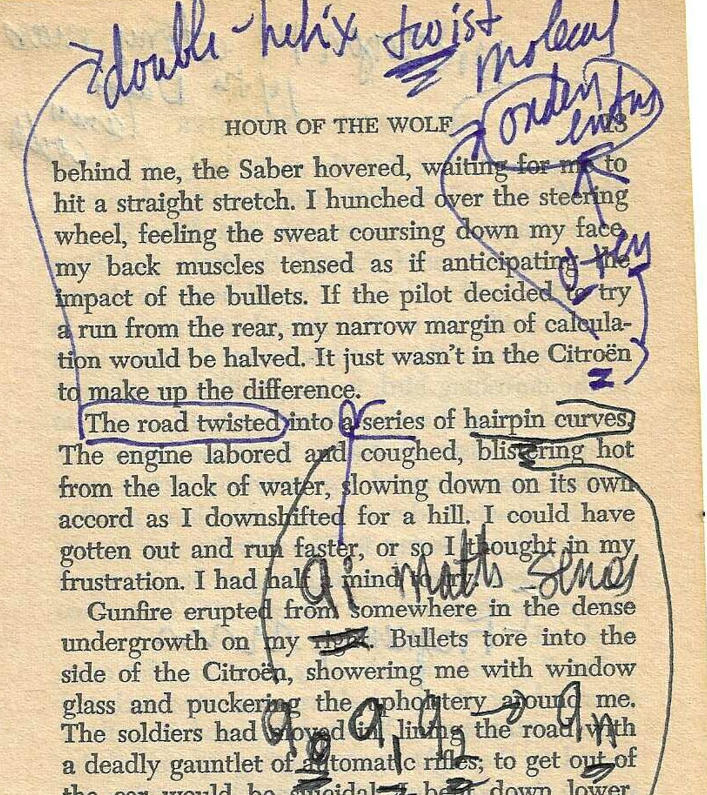 double-helix twist
HOUR OF THE WOLF 73
behind me, the Saber hovered, waiting for me to
hit a straight stretch. I hunched over the steering
wheel, feeling the sweat coursing down my face,
my back muscles tensed as if anticipating the
impact of the bullets. If the pilot decided to try
a run from the rear, my narrow margin of calcula-
tion would be halved. It just wasn't in the Citroën
to make up the difference.
The road twisted into a series of hairpin curves.
The engine labored and coughed, blistering hot
from the lack of water, slowing down on its own
accord as I downshifted for a hill. I could have
gotten out and run faster, or so I thought in my
frustration. I had half a mind to try.
ai math series
Gunfire erupted from somewhere in the dense
undergrowth on my right. Bullets tore into the
side of the Citroën, showering me with window
glass and puckering the upholstery around me.
a0 a1 a2 → an
The soldiers had moved in, lining the road with
a deadly gauntlet of automatic rifles; to get out of
the car would be suicidal. I bent down lower,